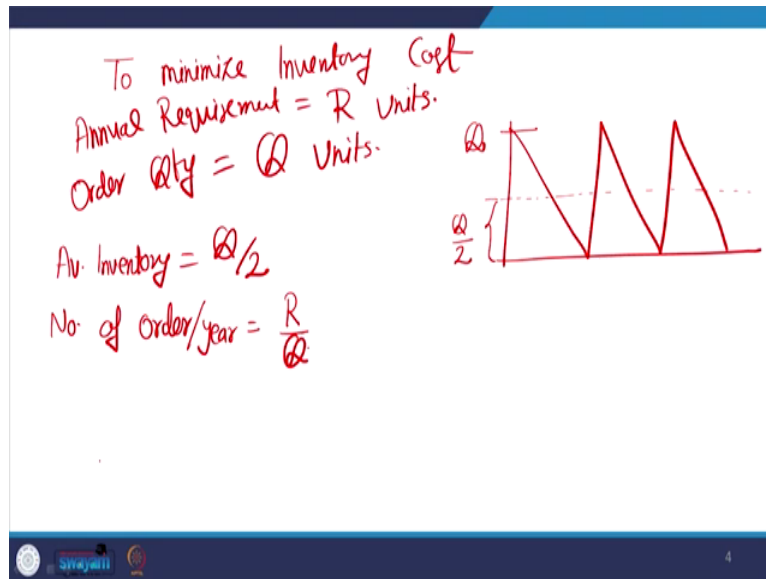 To minimize Inventory Cost
Annual Requirement = R Units.
Order Qty = Q Units.
Q
Q
2
Av. Inventory = Q/2
No. of order/year = R
Q
swayam
4